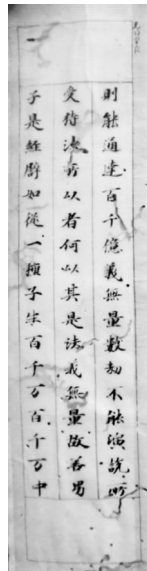 則能通達百千億義無量數劫不能演說所
受持法所以者何以其是法義無量故善男
子是經譬如從一種子生百千万百千万中